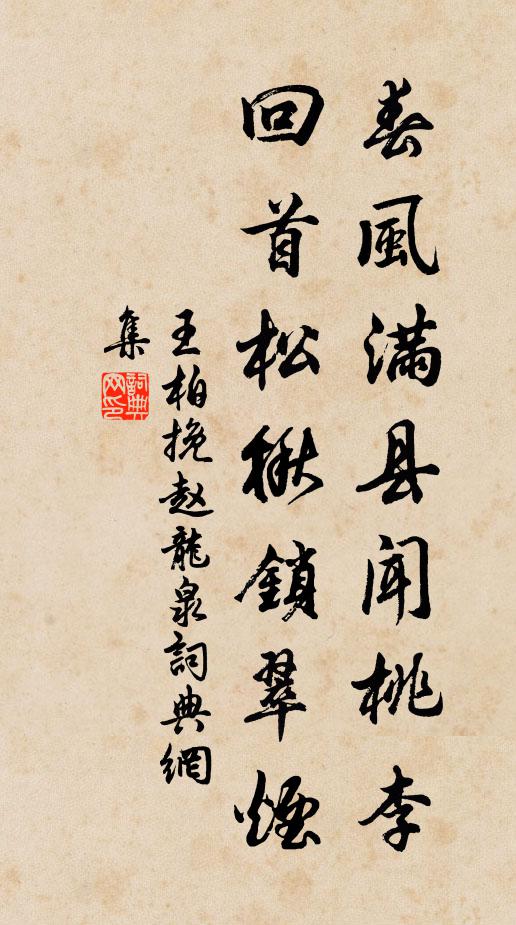 春風滿县闻桃李
回首松楸鎖翠煙
王柏挽赵龍泉詞典網
集
詞典
网印